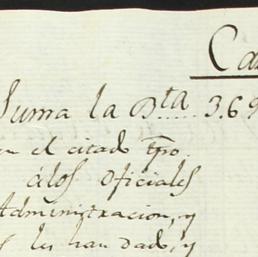 Ca
Suma la Dta..... 3.69
en el citado tpo.
alos oficiales
Administracion, y
s les han dado, y